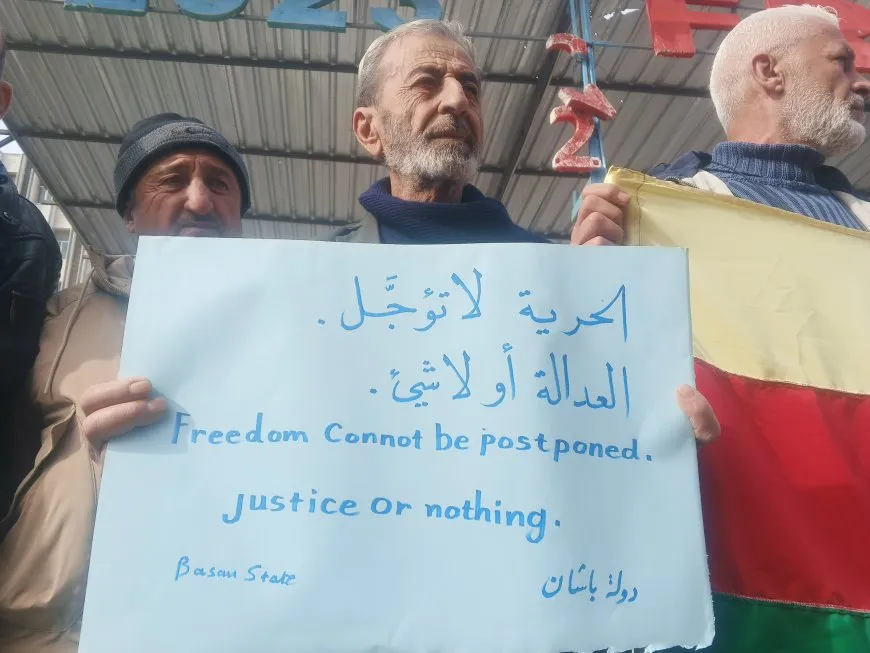 2025
الحرية لا تؤجَّل.
العدالة أو لا شيئ.
Freedom Connot be postponed.
Justice or nothing.
Basan State
دولة باشان